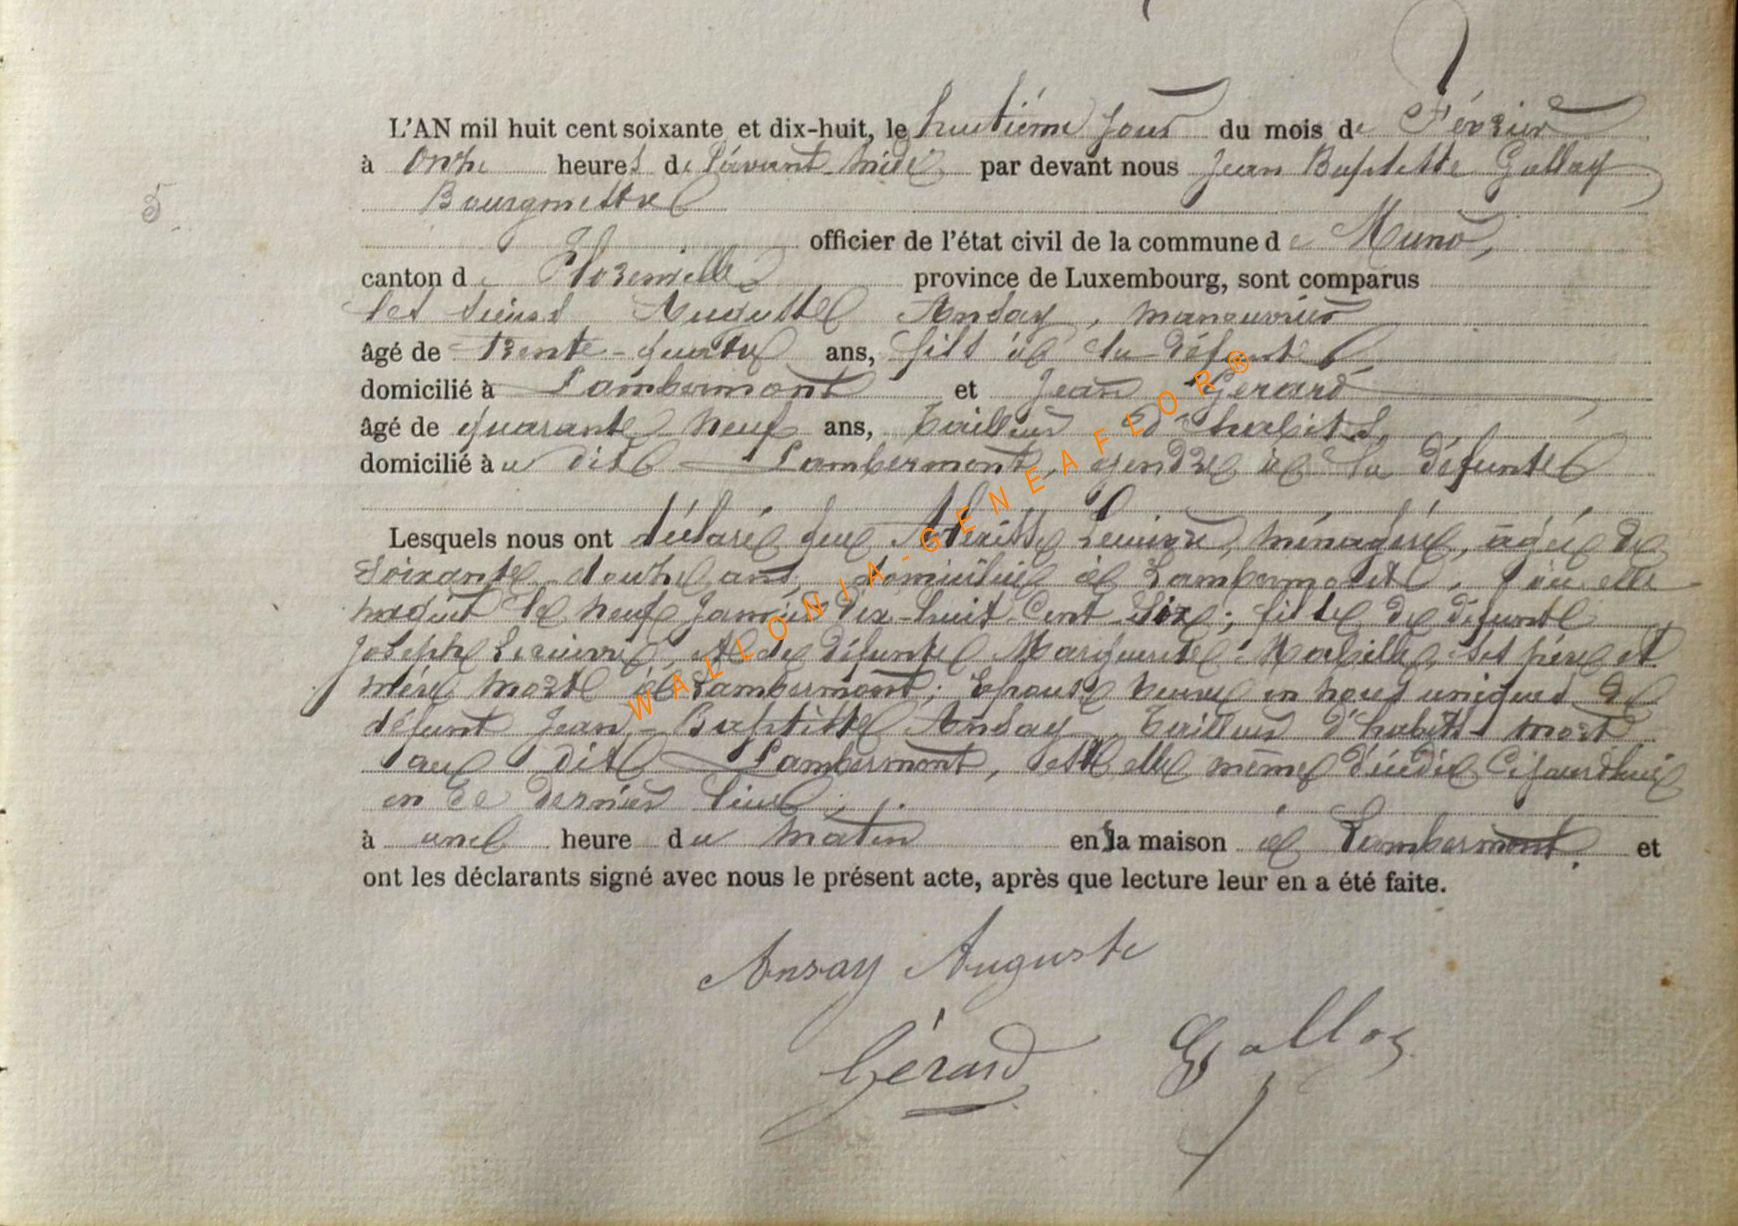 L'AN mil huit cent soixante et dix-huit, le huitième jour du mois de Février
à Onze heures de l'avant-midi par devant nous Jean Baptiste Gallay
5
Bourgmestre
officier de l'état civil de la commune de Muno,
canton de Florenville province de Luxembourg, sont comparus
les sieurs Auguste Ansay, manouvrier
âgé de trente-quatre ans, fils de la défunte
domicilié à Lambermont et Jean Gérard
âgé de quarante neuf ans, tailleur d'habits,
domicilié au dit Lambermont, gendre de la défunte
Lesquels nous ont déclaré que ménagère, âgée de
soixante-douze ans, domiciliée à Lambermont, où elle
naquit le neuf Janvier dix-huit cent six; fille de défunt
Joseph et de défunte Marguerite ses père et
mère morts à Lambermont; Epouse veuve en noces uniques de
défunt Jean-Baptiste Ansay, tailleur d'habits mort
au dit Lambermont, est elle même décédée cejourd'hui
en ce dernier lieu,
à une heure du matin en la maison à Lambermont. et
ont les déclarants signé avec nous le présent acte, après que lecture leur en a été faite.
Ansay Auguste
Gérard Gallay
WALLONIA-GENEAFLOR®